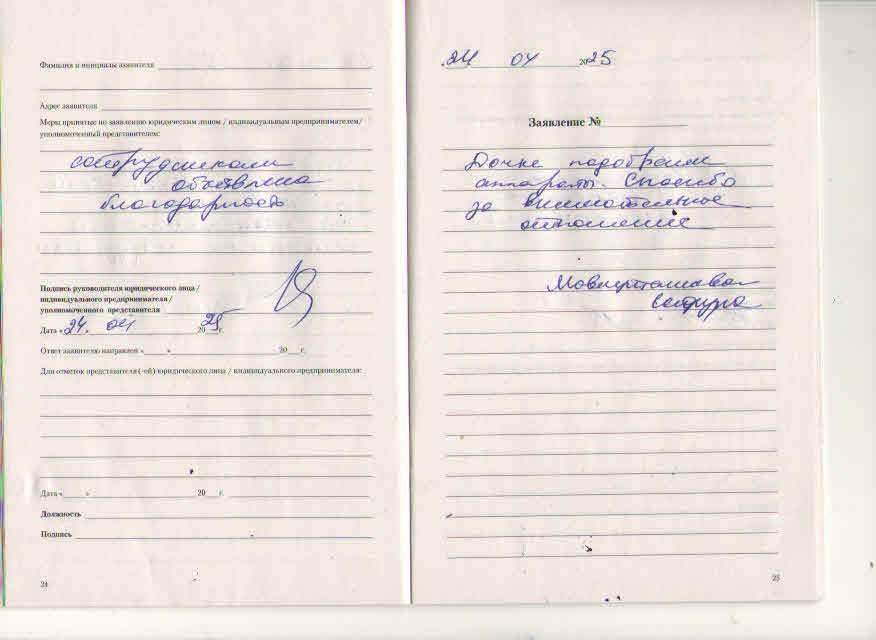 Фамилия и инициалы заявителя
Адрес заявителя
Меры принятые по заявлению юридическим лицом / индивидуальным предпринимателем/
уполномоченный представителем:
сотрудникам
объявлена
благодарность
Подпись руководителя юридического лица /
индивидуального предпринимателя /
уполномоченного представителя
Дата « 24. 04 2025 г.
Ответ заявителю направлен « » 20 г.
Для отметок представителя (-ей) юридического лица / индивидуального предпринимателя:
Дата « » 20 г.
Должность
Подпись
24
24 04 2025
Заявление №
Дочке подобрали
аппараты. Спасибо
за внимательное
отношение
25